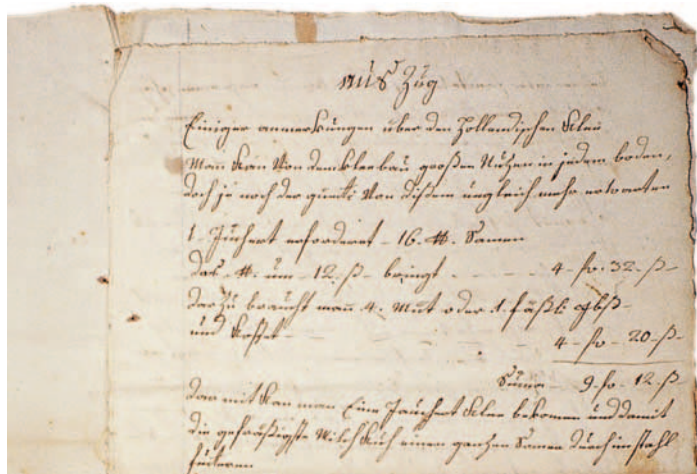 aus Zug
Einiger anmerkungen über den Hollendischen Klee
Man kan Von dem kleebau großen Nutzen in jedem boden,
doch je nach der guetti Von disem ungleich mehr erwarten
1 Juchert erforderet - 16. ℔. Samen
das ℔. um - 12 ß - bringt - - - - 4 - fr. 32 - ß -
dar Zu braucht man 4. Müt oder 1 fäßli gbß -
und kostet - - - - - 4 - fr - 20 - ß -
Suma - 9 - fr - 12 ß
dar mit kan man Eine Jauchert klee bekomen und damit
die gefräßigste Milch kuh einen ganzen Somer durch im stahl
füteren